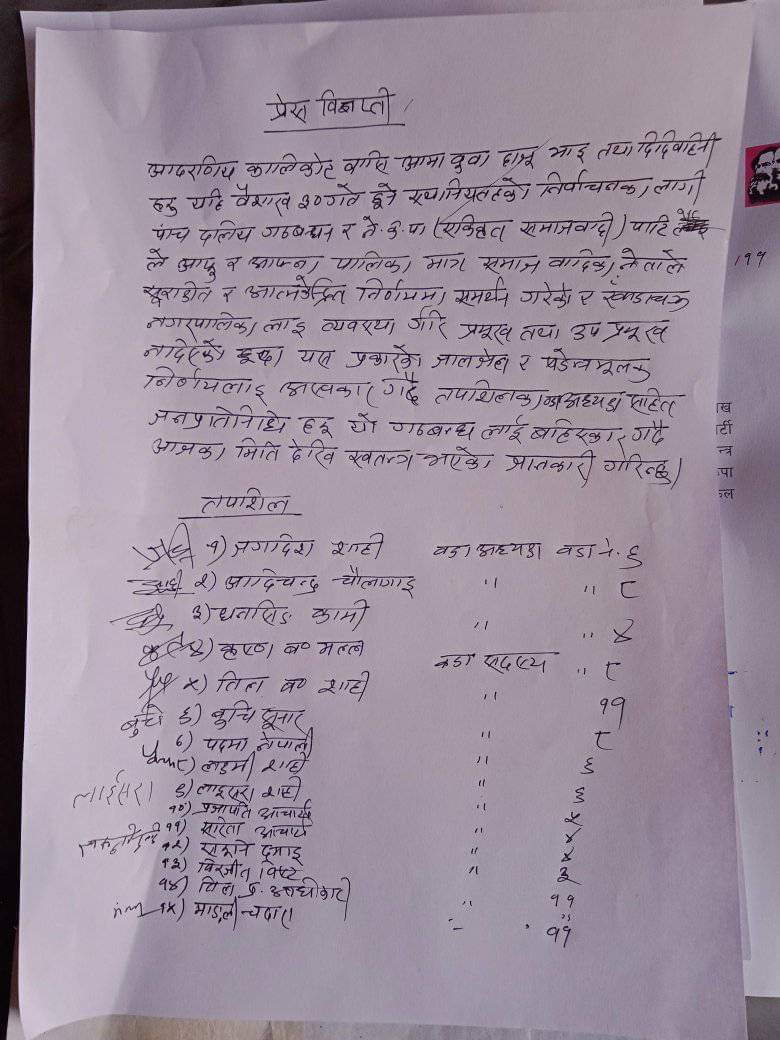 प्रेस विज्ञप्ती
आदरणिय कालिकोट वासि आमा बुवा दाजु भाइ तथा दिदिवहिनी
हरु यहि वैशाख ३० गते हुने स्थानियतहको निर्वाचनका लागी
पांच दलिय गठबन्धन र ने.क.पा (एकिकृत समाजवादी) पार्टि
ले आफु र आफ्ना पालिका मात्र समाज वादिका नेताले
र आत्मकेन्द्रित निर्णयमा समर्थन गरेको र खाँडाचक्र
नगरपालिका लाइ व्यवस्था गरि प्रमुख तथा उप प्रमुख
नादिएको हुदा यस प्रकारको जालझेल र षडेन्त्रमूलक
निर्णयलाइ अस्वकार गर्दै तपाशिलका वडाअध्यक्ष सहित
जनप्रतिनिधि हरु यो गठबन्धन लाई बहिस्कार गर्दै
आजका मिति देखि स्वतन्त्र भएको जानकारी गरिन्छ।
तपाशिल
१) जगदिश शाही वडा अध्यक्ष वडा नं. ६
२) आदिचन्द्र चौलागाइ " " ८
३) धनसिङ कामी " " ४
४) कृष्ण ब० मल्ल वडा सदस्य " ८
५) तिल ब० शाही " ११
बुची ६) बुचि दमाइ " ८
७) पदमा नेपाली " ६
८) लक्ष्मी शाही " ६
लाईसरा ९) लाइसरा शाही "
१०) प्रजापति आचार्य "
११) सरिता आचार्य "
१२) दमाइ " ३
१३) विरजीत " ११
१४) तिल प्र. "
१५) " ११
१९